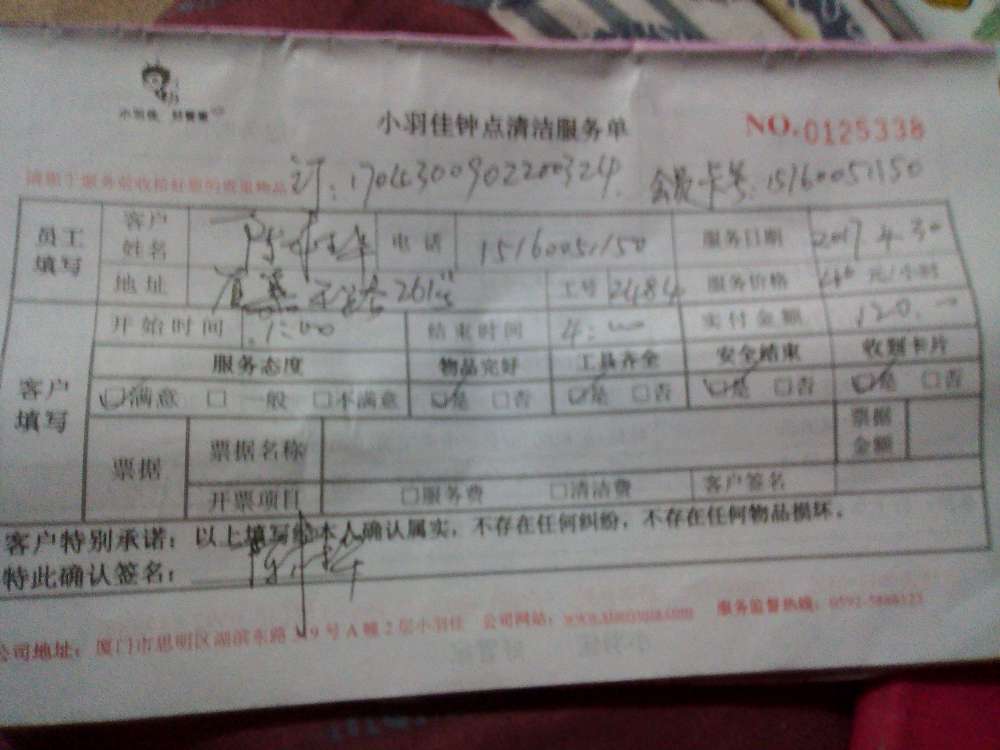 小羽佳 好管家
小羽佳钟点清洁服务单 NO.0125338
订:170430090220324 会员卡号:15160051150
员工填写 客户姓名 电话 15160051150 服务日期 2017.4.30
地址 261 工号 2484 服务价格 元/小时
客户填写 开始时间 1:00 结束时间 4:00 实付金额 120.00
服务态度 物品完好 工具齐全 安全结束 收到卡片
□满意 □一般 □不满意 □是 □否 □是 □否 □是 □否 □是 □否
票据 票据名称 票据金额
开票项目 □服务费 □清洁费 客户签名
客户特别承诺:以上填写给本人确认属实,不存在任何纠纷,不存在任何物品损坏。
特此确认签名:
公司地址:厦门市思明区湖滨东路 9号A幢2层小羽佳 公司网站: 服务监督热线:0592-5888123